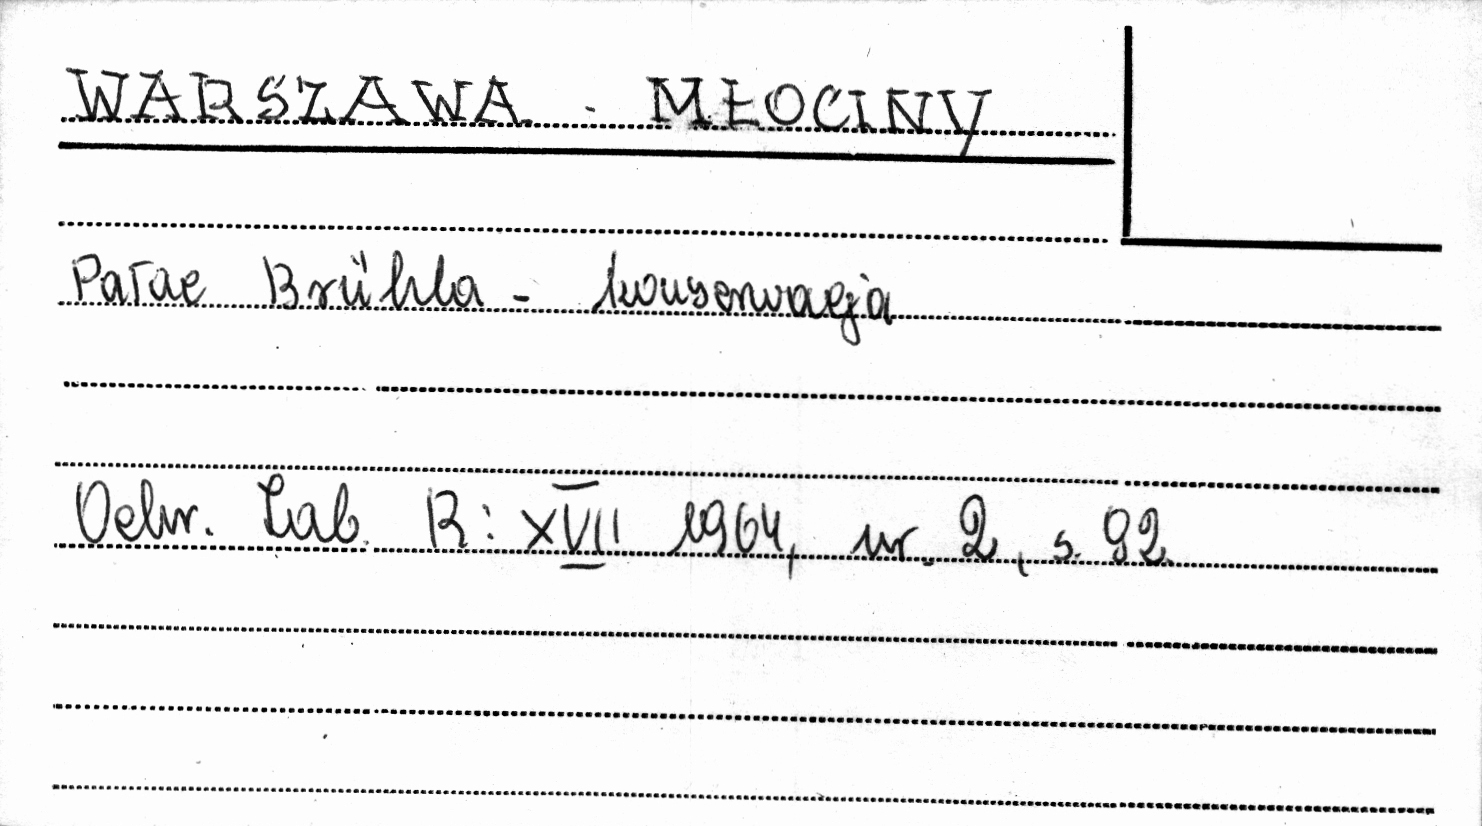 WARSZAWA - MŁOCINY
Pałac Brühla - konserwacja
Ochr. Zab. R: XVII 1964, nr. 2, s. 92.